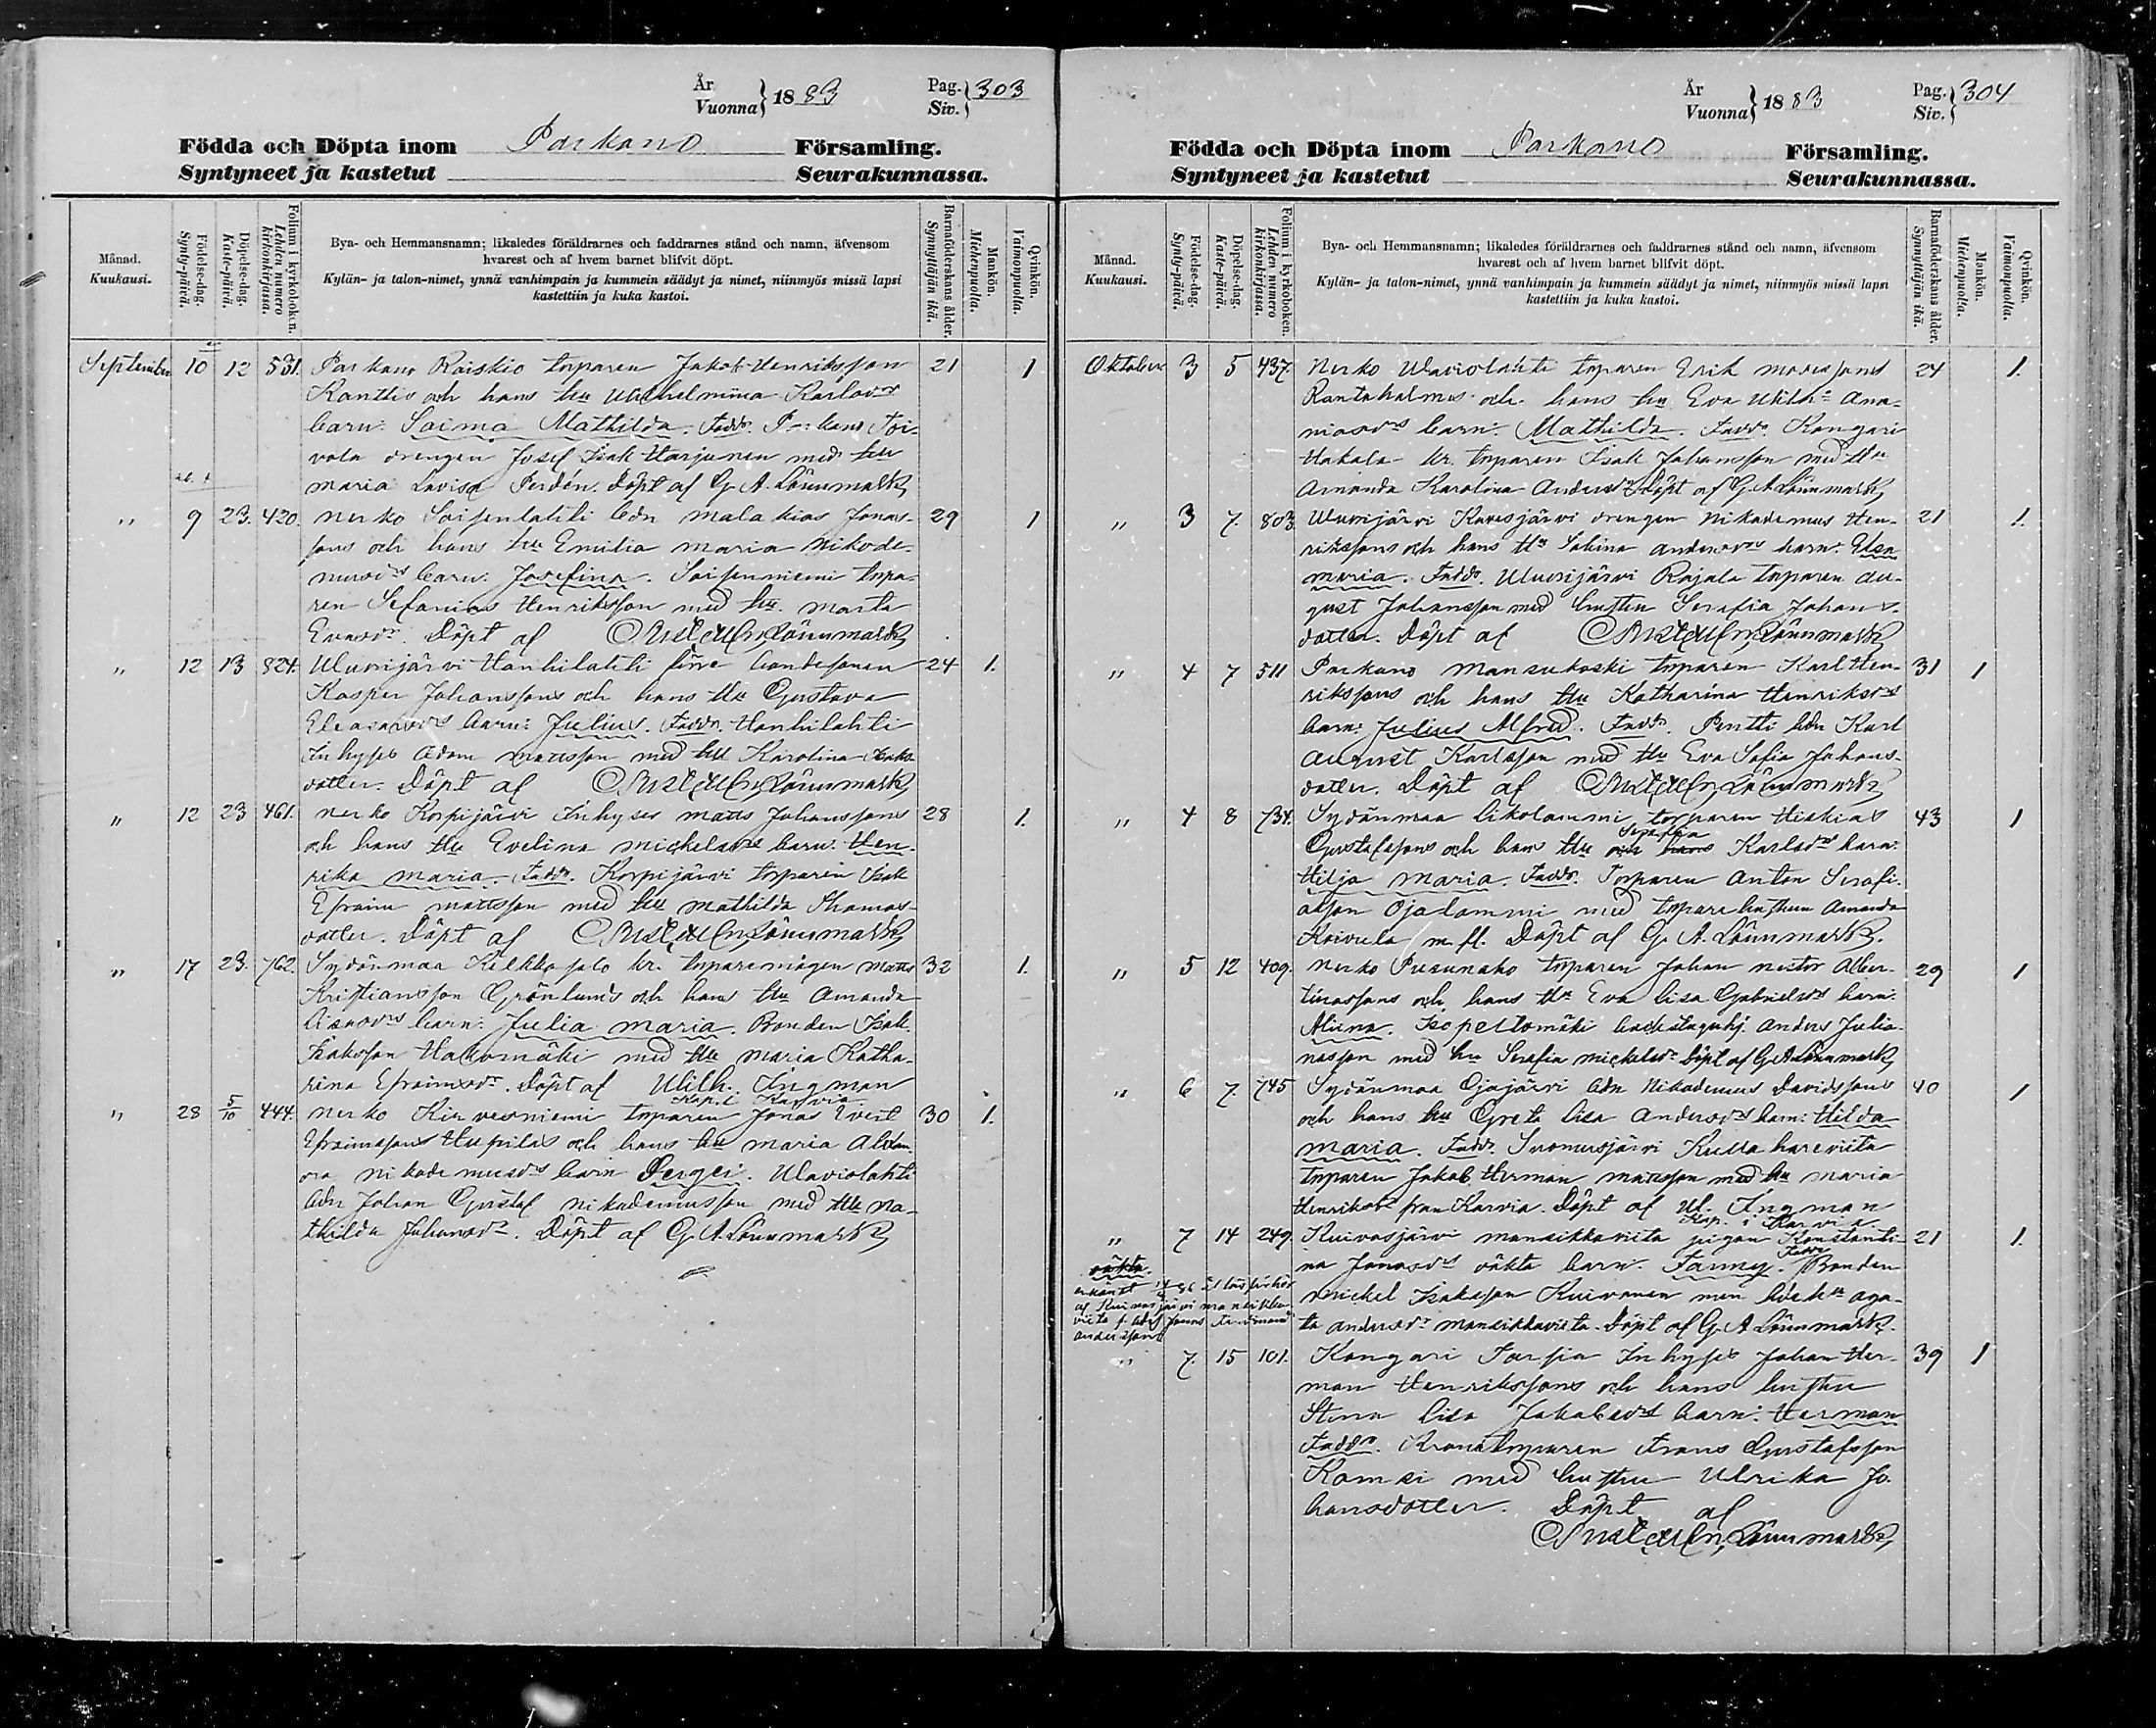 År
Vuonna } 1883
Pag.
Siv. } 303
Födda och Döpta inom Parkano Församling.
Syntyneet ja kastetut Seurakunnassa.
Månad.
Kuukausi.
Födelse-dag.
Synty-päivä.
Döpelse-dag.
Kaste-päivä.
Folium i kyrkoboken.
Lehden numero
kirkonkirjassa.
Bya- och Hemmansnamn; likaledes föräldrarnes och faddrarnes stånd och namn, äfvensom
hvarest och af hvem barnet blifvit döpt.
Kylän- ja talon-nimet, ynnä vanhimpain ja kummein säädyt ja nimet, niinmyös missä lapsi
kastettiin ja kuka kastoi.
Barnaföderskans ålder.
Synnyttäjän ikä.
Mankön.
Miehenpuolia.
Qvinkön.
Vaimonpuolia.
September 10 12 531. Parkano Raiskio torparen Jakob Henriksson 21 1
Kanttis och hans hu Wilhelmina Karlsdrs
barn: Saima Mathilda. Faddr. Parkano Toi-
vola drengen Josef Isak Harjunen med hu
Maria Lovisa Perdén. Döpt af G. A. Lönnmark
" 9 23. 420. Nerko Soisenlahti bdn Malakias Jonas- 29 1
sons och hans hu Emilia Maria Nikode-
musdrs barn: Josefina. Soisenniemi torpa-
ren Sefanias Henriksson med hu Marta
Evasdr. Döpt af Gustaf Ad. Lönnmark
" 12 13 824. Wuorijärvi Hanhilahti förre bondesonen 24 1.
Kasper Johanssons och hans hu Gustava
Eleasarsdrs barn: Julius. Faddr. Hanhilahti
Inhyses Adam Mattsson med hu Karolina Isaks-
dotter. Döpt af Gustaf Ad. Lönnmark
" 12 23 461. Nerko Korpijärvi Inhyses Matts Johanssons 28 1.
och hans hu Evelina Mickelsdrs barn: Hen-
rika Maria. Faddr. Korpijärvi torparen Isak
Efraim Mattsson med hu Mathilda Thomas-
dotter. Döpt af Gustaf Ad. Lönnmark
" 17 23. 762. Sydänmaa Kelkkasalo kr. torparemågen Matts 32 1.
Kristiansson Grönlunds och hans hu Amanda
Lisasdrs barn: Julia Maria. Bonden Isak
Isaksson Hakomäki med hu Maria Katha-
rina Efraimsdr. Döpt af Wilh. Ingman
Kap. i Karvia
" 28 5/10 444. Nerko Kirvesniemi torparen Jonas Evert 30 1.
Efraimssons Hupilas och hans hu Maria
Nikodemusdrs barn Sergei. Ulaviolahti
bdn Johan Gustaf Nikodemusson med hu Ma-
thilda Johansdr. Döpt af G. A. Lönnmark
År
Vuonna } 1883
Pag.
Siv. } 304
Födda och Döpta inom Parkano Församling.
Syntyneet ja kastetut Seurakunnassa.
Månad.
Kuukausi.
Födelse-dag.
Synty-päivä.
Döpelse-dag.
Kaste-päivä.
Folium i kyrkoboken.
Lehden numero
kirkonkirjassa.
Bya- och Hemmansnamn; likaledes föräldrarnes och faddrarnes stånd och namn, äfvensom
hvarest och af hvem barnet blifvit döpt.
Kylän- ja talon-nimet, ynnä vanhimpain ja kummein säädyt ja nimet, niinmyös missä lapsi
kastettiin ja kuka kastoi.
Barnaföderskans ålder.
Synnyttäjän ikä.
Mankön.
Miehenpuolia.
Qvinkön.
Vaimonpuolia.
Oktober 3 5 437. Nerko Ulaviolahti torparen Erik 24 1.
Rantaholmis och hans hu Eva Wilha Ana-
niasdrs barn: Mathilda. Faddr. Kangari
Hakala kr. torparen Isak Johansson med hu
Amanda Karolina Andersdr. Döpt af G. A. Lönnmark
" 3 7. 803. Wuorijärvi Karesjärvi drengen Nikodemus Hen- 21 1.
rikssons och hans hu Sabina Andersdrs barn: Elsa
Maria. Faddr. Wuorijärvi Rajala torparen Au-
gust Johansson med hustru Serafia Johans-
dotter. Döpt af Gustaf Ad. Lönnmark
" 4 7 511 Parkano Mansukoski torparen Karl Hen- 31 1
rikssons och hans hu Katharina Henriksdrs
barn: Julius Alfred. Faddr. Pentti bdn Karl
August Karlsson med hu Eva Sofia Johans-
dotter. Döpt af Gustaf Ad. Lönnmark
" 4 8 734. Sydänmaa Likolammi torparen Hiskias 43 1
Gustafssons och hans hu och hans Serafia Karlsdrs barn:
Hilja Maria. Faddr. Torparen Anton Serafi-
asson Ojalammi med torparehustrun Amanda
Koivula m. fl. Döpt af G. A. Lönnmark.
" 5 12 409. Nerko Pusunaho torparen Johan Nestor Alber- 29 1
tinassons och hans hu Eva Lisa Gabrielsdrs barn:
Aliina. Isopeltomäki backstuguhj. Anders Julia-
nasson med hu Serafia Mickelsdr. Döpt af G. A. Lönnmark
" 6 7. 745 Sydänmaa Ojajärvi bdn Nikodemus Davidssons 40 1
och hans hu Greta Lisa Andersdrs barn: Hilda
Maria. Faddr. Suomusjärvi
torparen Jakob Herman Mattsson med hu Maria
Henriksdr från Karvia. Döpt af W. Ingman
Kap. i Karvia.
" 7 14 249. Kuivasjärvi Mansikkaviita pigan Konstanti- 21 1.
na Jonasdrs oäkta barn: Fanny. Faddr Bonden
Michel Isaksson Kuivanen men bdeha Aga-
ta Andersdr Mansikkaviita. Döpt af G. A. Lönnmark.
oäkta
erkändt
af Kuivasjärvi Mansikka-
viita f. bdn Jonas Ferdinand
Anderssons
" 7. 15 101. Kangari Tarsia Inhyses Johan Her- 39 1
man Henrikssons och hans hustru
Stina Lisa Jakobsdrs barn: Herman
Faddr. Kronotorparen Frans Gustafsson
Komsi med hustru Ulrika Jo-
hansdotter. Döpt af
Gustaf Ad. Lönnmark